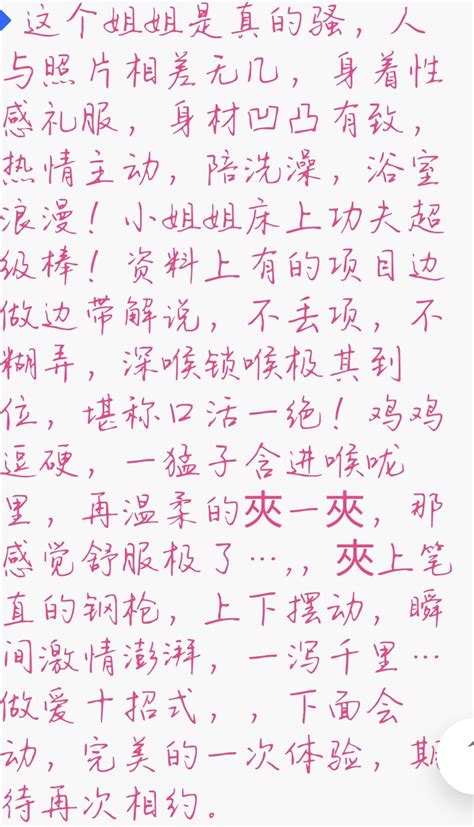 这个姐姐是真的骚，人
与照片相差无几，身着性
感礼服，身材凹凸有致，
热情主动，陪洗澡，浴室
浪漫！小姐姐床上功夫超
级棒！资料上有的项目边
做边带解说，不丢项，不
糊弄，深喉锁喉极其到
位，堪称口活一绝！鸡鸡
逗硬，一猛子含进喉咙
里，再温柔的夾一夾，那
感觉舒服极了…,，夾上笔
直的钢枪，上下摆动，瞬
间激情澎湃，一泻千里…
做爱十招式，，下面会
动，完美的一次体验，期
待再次相约。